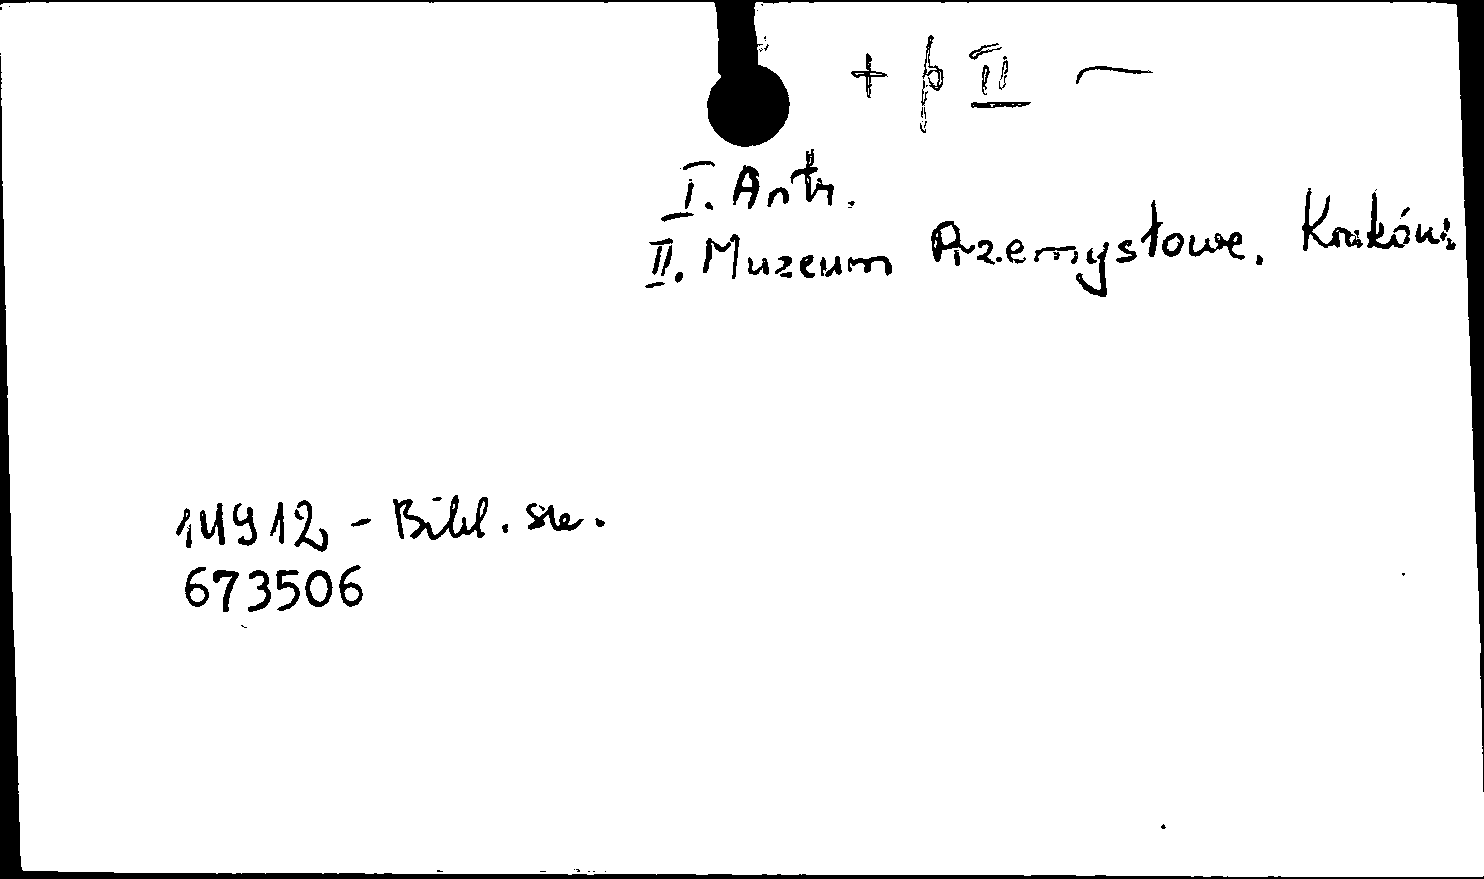 + p II —
I. Antr.
II. Muzeum Przemysłowe. Kraków.
14912 - Bibl. sw.
673506